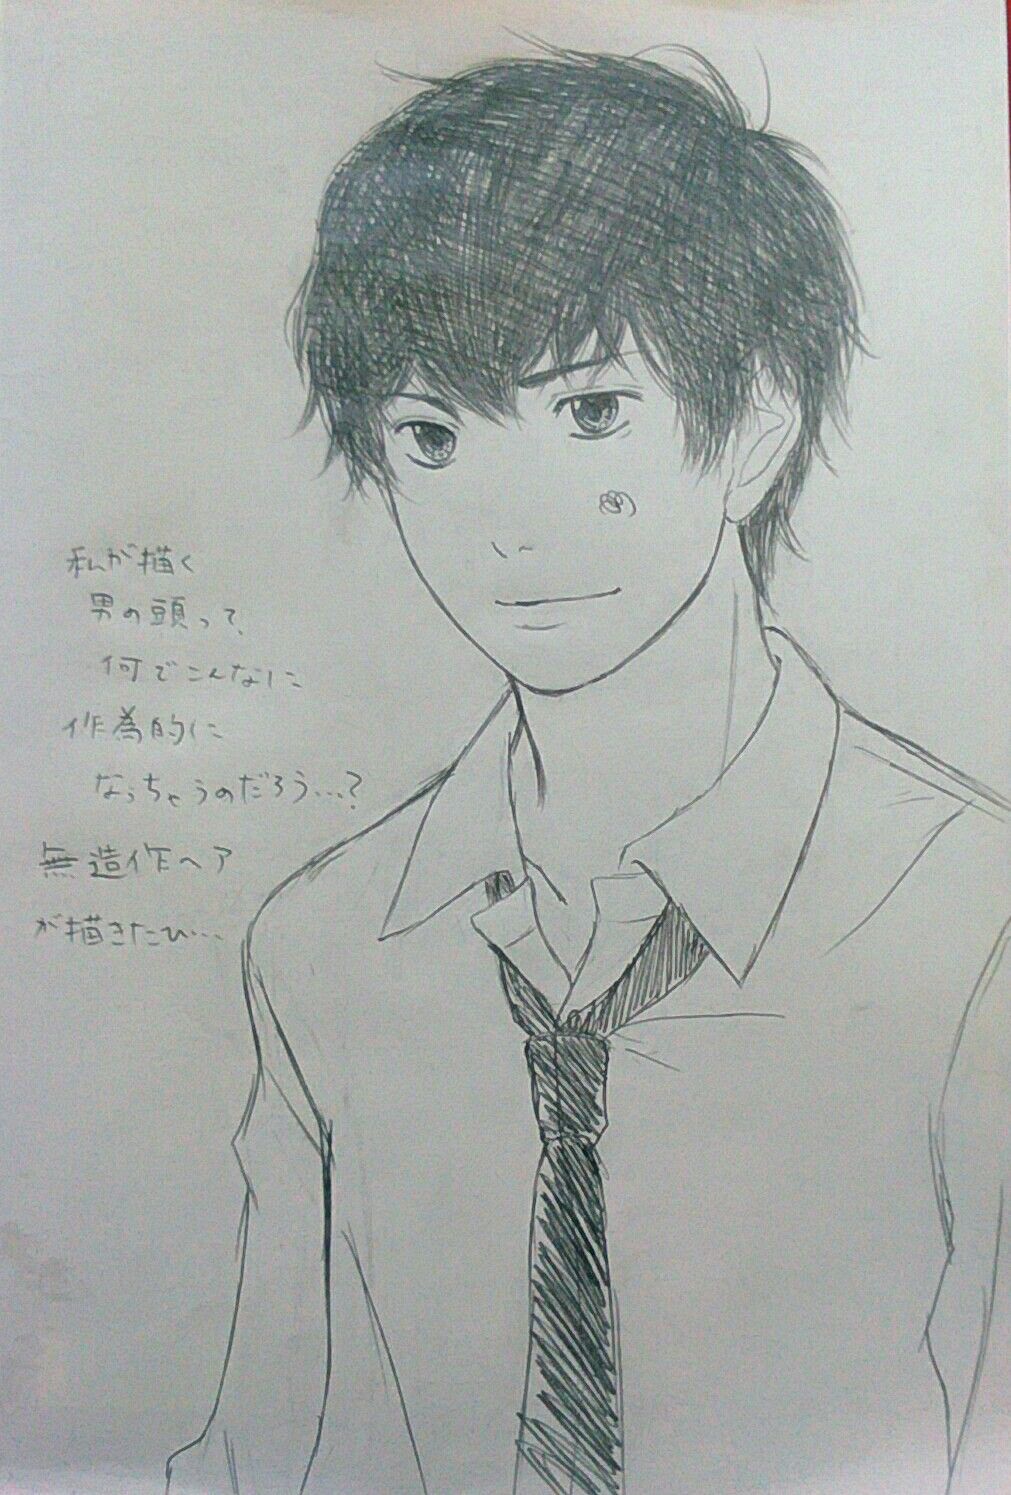 私が描く
男の頭って、
何でこんなに
作為的に
なっちゃうのだろう…?
無造作ヘア
が描きたひ…